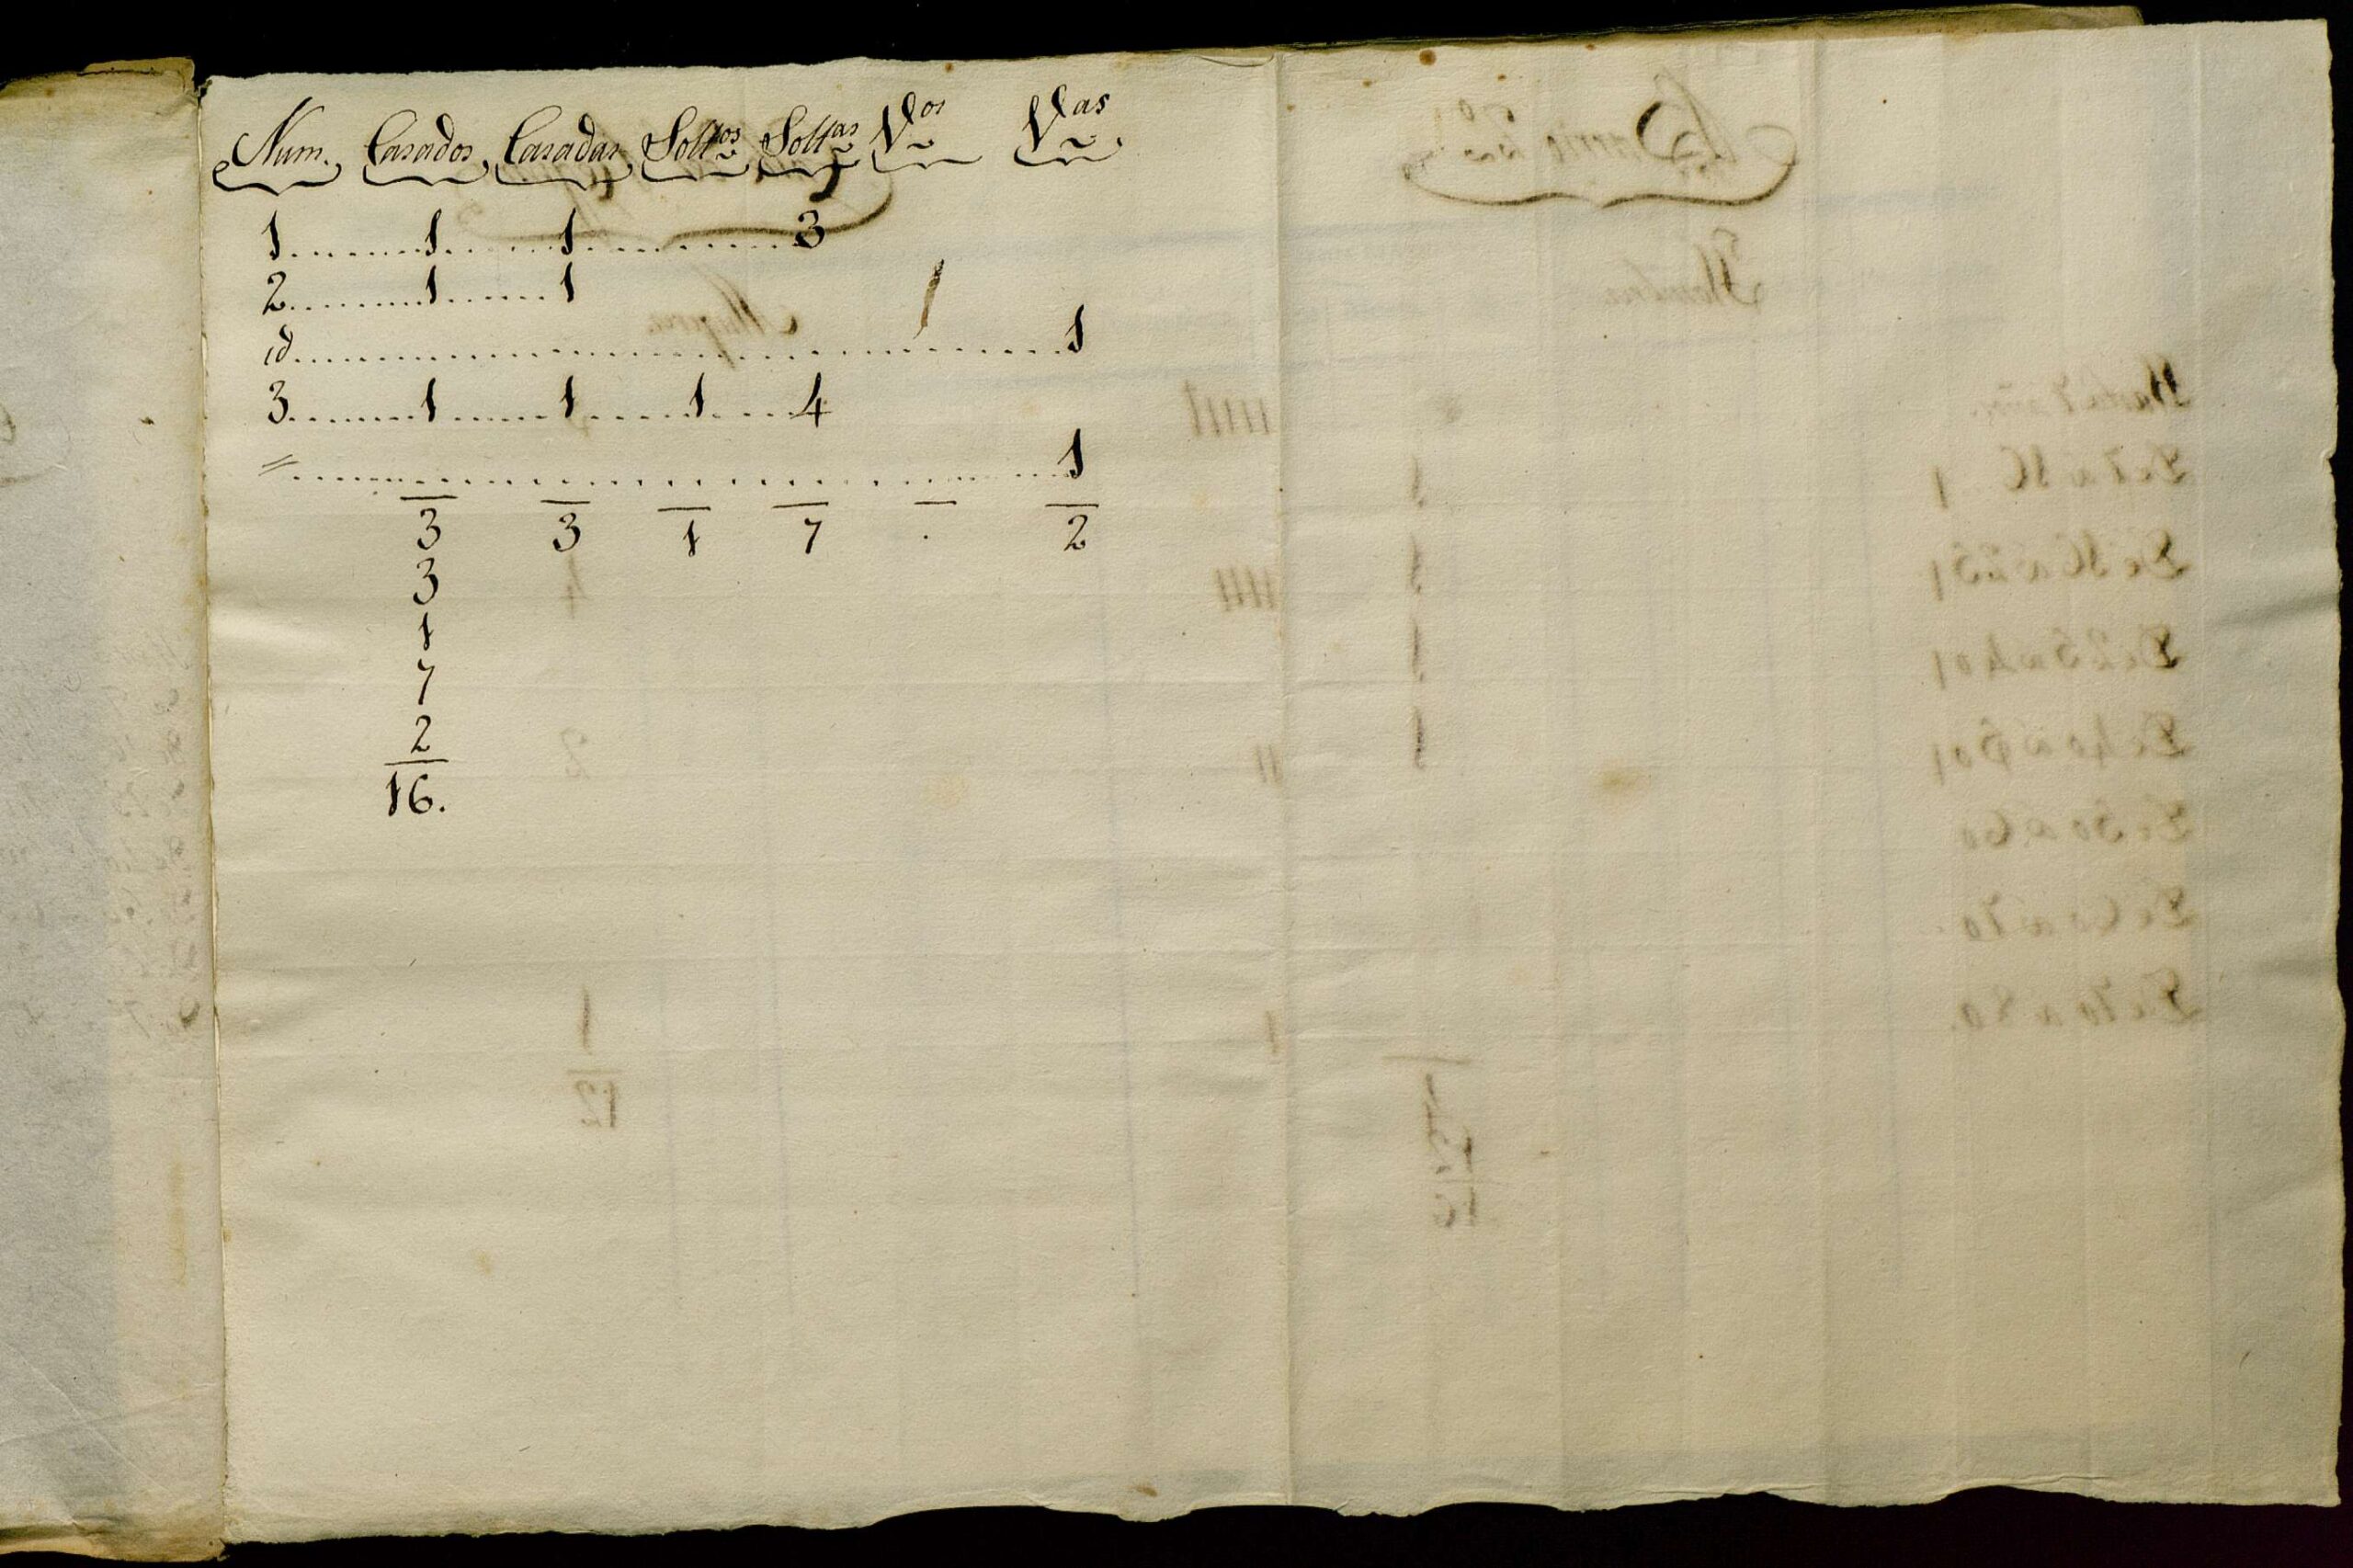 Num. Casados Casadas Solt.os Solt.as V.os V.as
1 ........ 1 ........ 1 ............ 3
2 ........ 1 ........ 1
id ................................ 1
3 ........ 1 ........ 1 ...... 1 ...... 4
= ................................ 1
3 3 1 7 . 2
3
1
7
2
16.